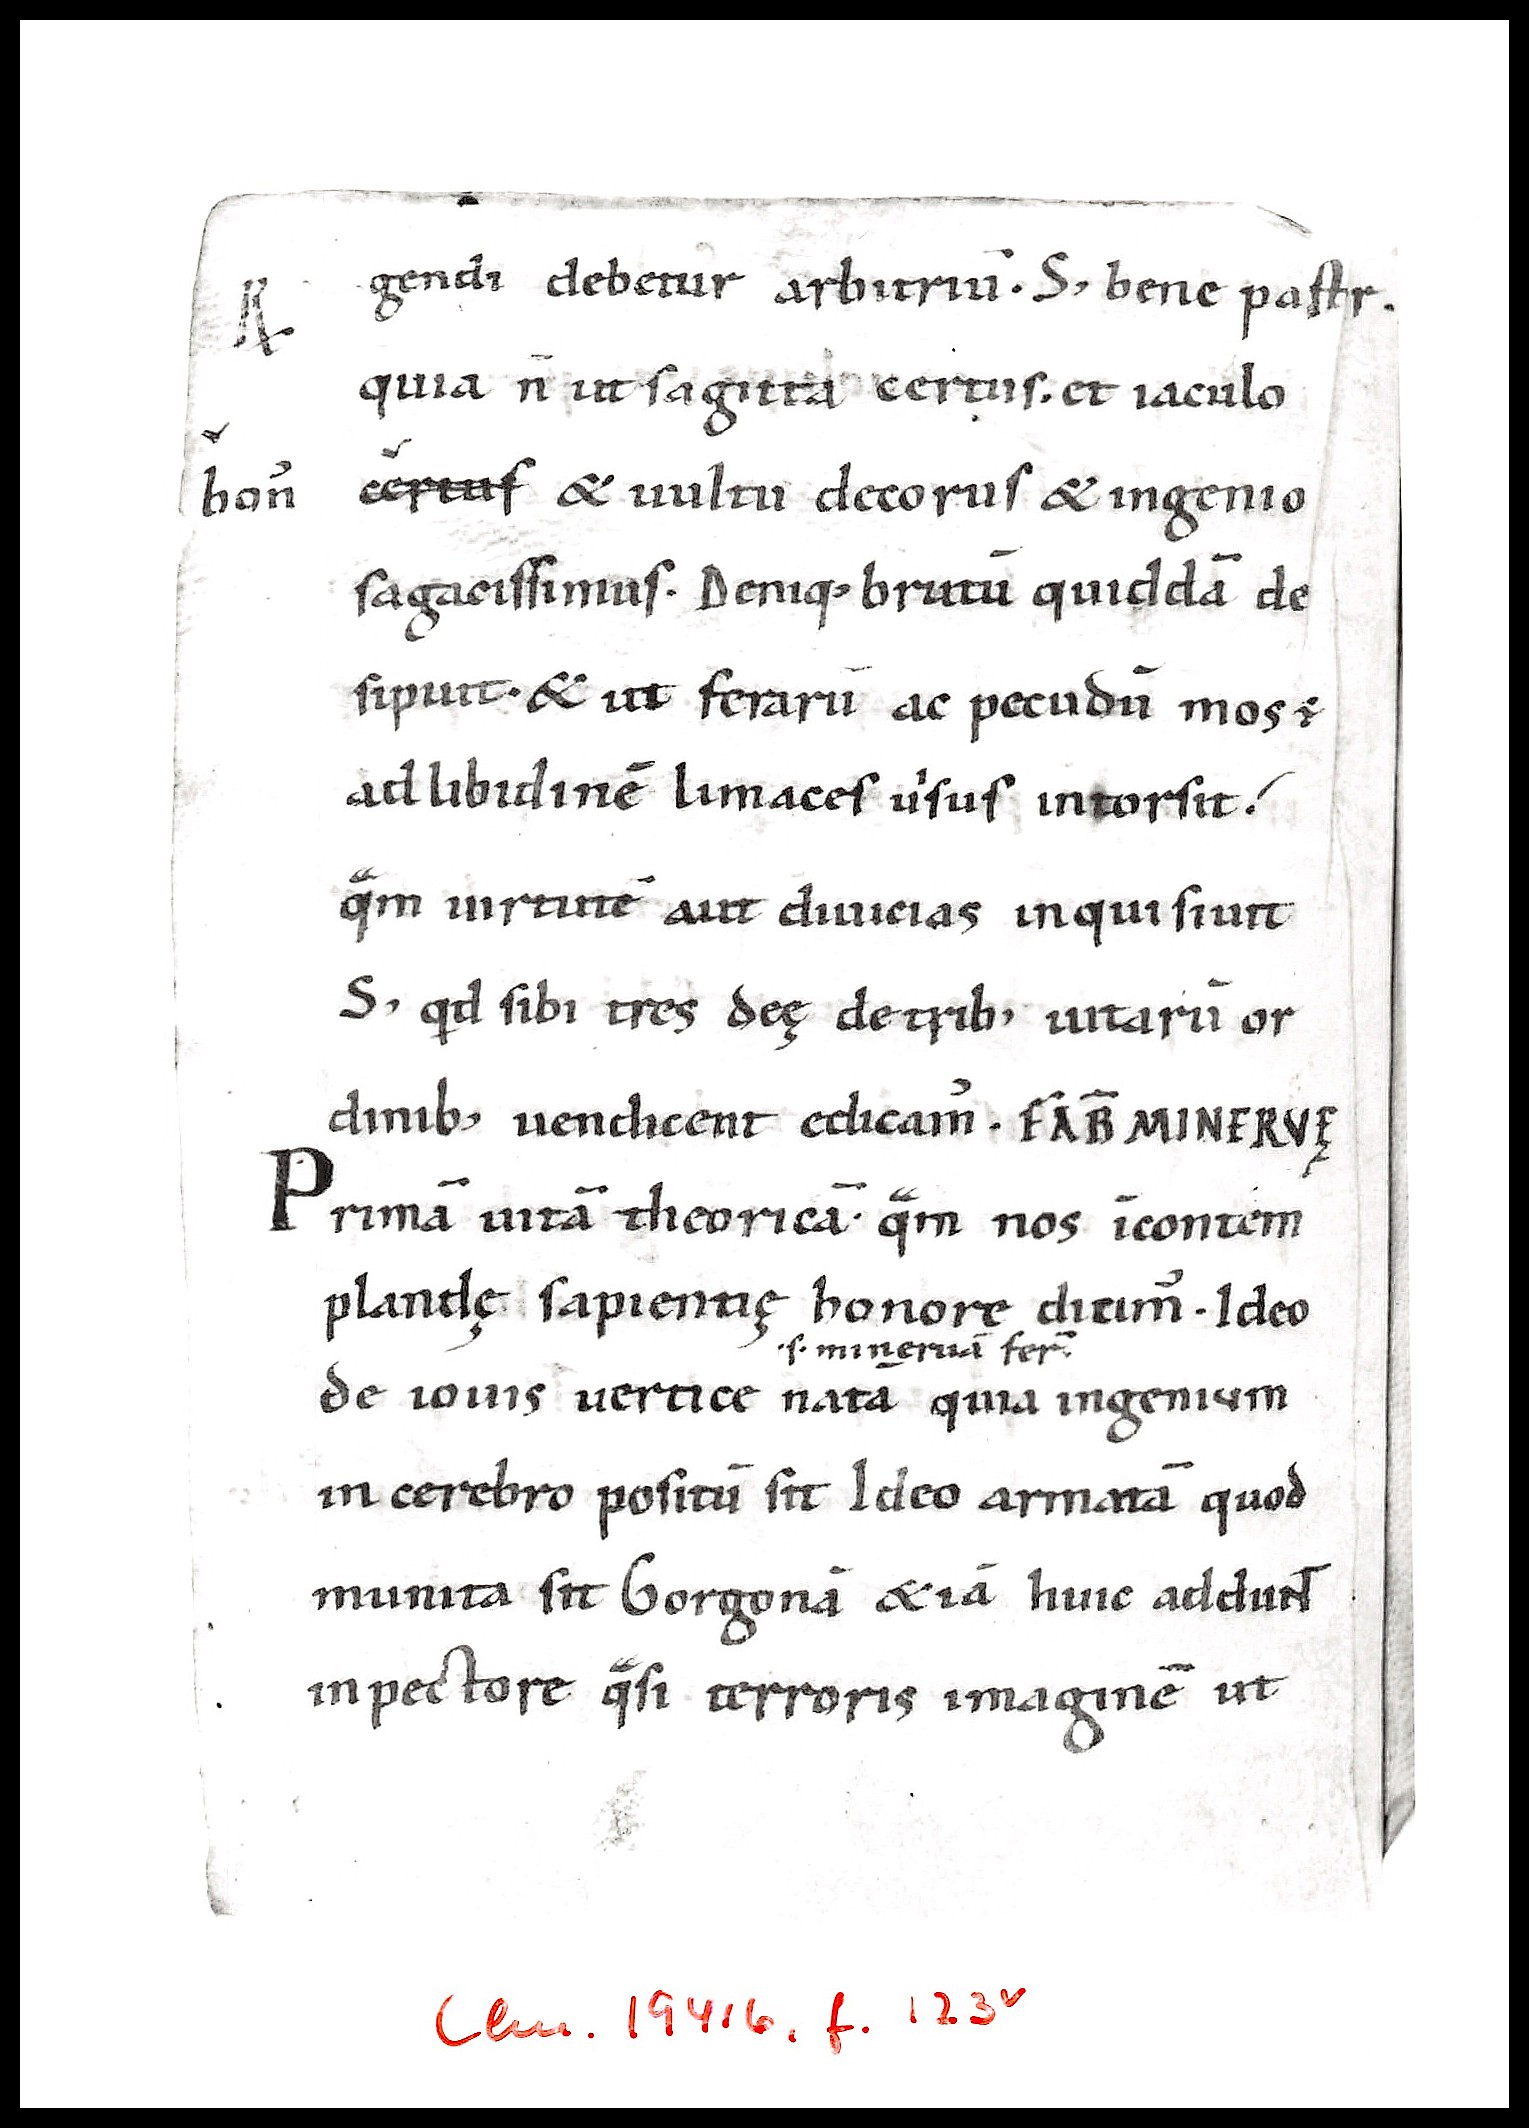 gendi debetur arbitriū. S, bene pastr.
quia n̄ ut sagitta certus. et iaculo
bon᾽ certus & uultu decorus & ingenio
sagacissimus. Deniq; brutū quiddā de
sipuit. & ut ferarū ac pecudū mos ę
ad libidinē limaces u᾽sus intorsit.
qᵃ̄m uirtutē aut diuicias inquisiuit
S, qd sibi tres deę de trib, uitarū or
dinib, uendicent edicam᾽. FAB̄ MINERVĘ
Primā uitā theoricā. qᵃm nos īcontem
plandę sapientię honore ditim᾽. Ideo
.s. mineruā fer̄.
de iouis uertice natā quia ingenium
in cerebro positū sit Ideo armatā quod
munita sit Gorgonā &iā huic addunt̄
in pectore qᵃsi terroris imaginē ut
Clm. 19416, f. 123v